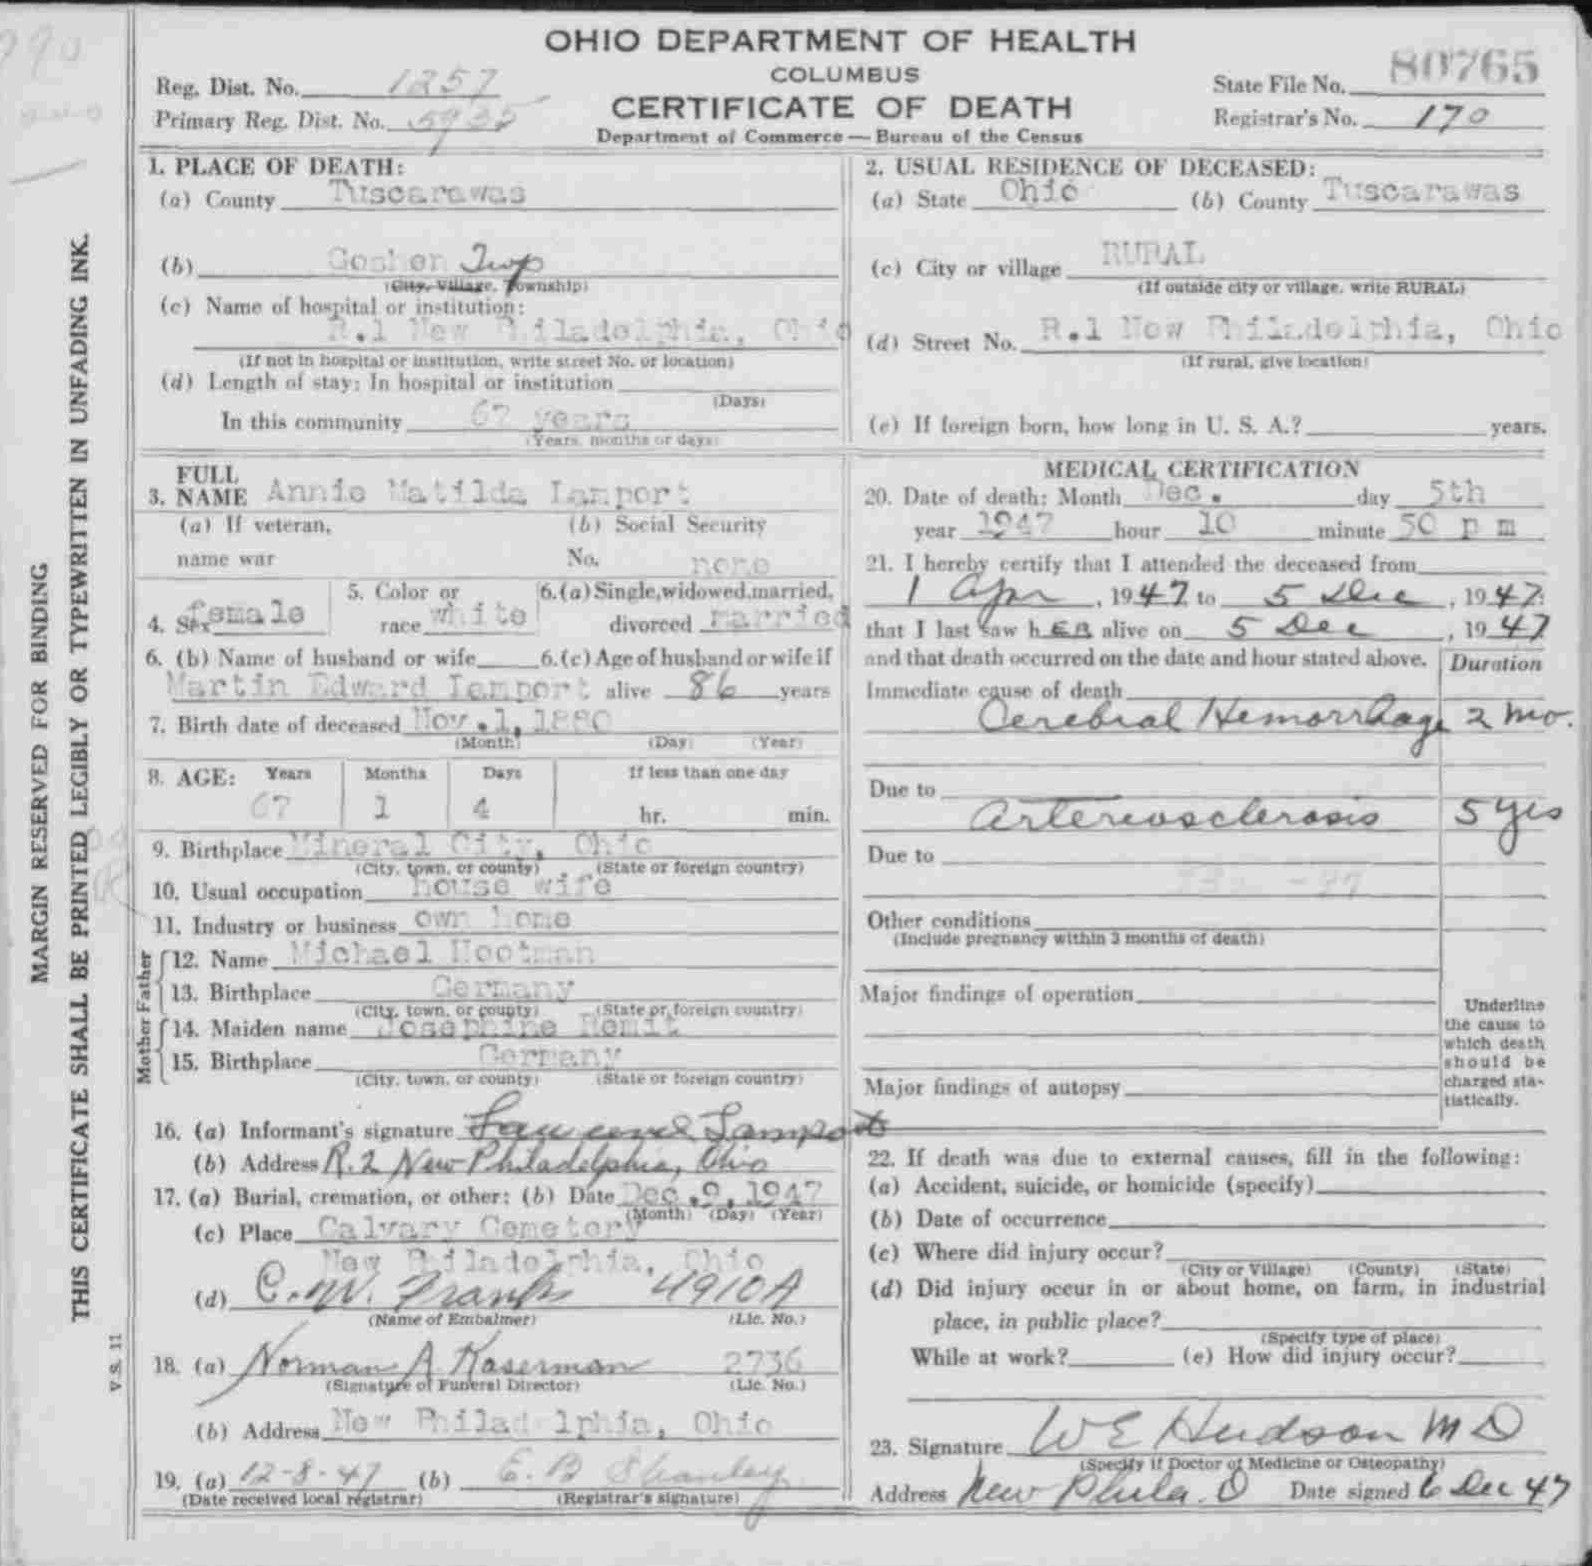 OHIO DEPARTMENT OF HEALTH
COLUMBUS
CERTIFICATE OF DEATH
Department of Commerce — Bureau of the Census
Reg. Dist. No. 1257
Primary Reg. Dist. No.
State File No. 80765
Registrar's No. 170
1. PLACE OF DEATH:
(a) County Tuscarawas
(b) Goshen Twp
(City, Village, Township)
(c) Name of hospital or institution:
R.1 New Philadelphia, Ohio
(If not in hospital or institution, write street No. or location)
(d) Length of stay: In hospital or institution
(Days)
In this community 67 years
(Years, months or days)
2. USUAL RESIDENCE OF DECEASED:
(a) State Ohio (b) County Tuscarawas
(c) City or village RURAL
(If outside city or village, write RURAL)
(d) Street No. R.1 New Philadelphia, Ohio
(If rural, give location)
(e) If foreign born, how long in U. S. A.? years.
FULL
3. NAME Annie Matilda Lamport
(a) If veteran, (b) Social Security
name war No. none
5. Color or 6.(a) Single, widowed, married,
4. Sex female race white divorced married
6. (b) Name of husband or wife 6.(c) Age of husband or wife if
Martin Edward Lamport alive 86 years
7. Birth date of deceased Nov. 1, 1880
(Month) (Day) (Year)
8. AGE: Years Months Days If less than one day
67 1 4 hr. min.
9. Birthplace Mineral City, Ohio
(City, town, or county) (State or foreign country)
10. Usual occupation house wife
11. Industry or business own home
Father
12. Name Michael Hootman
13. Birthplace Germany
(City, town, or county) (State or foreign country)
Mother
14. Maiden name Josephine
15. Birthplace Germany
(City, town, or county) (State or foreign country)
16. (a) Informant's signature Lawrence Lamport
(b) Address R.2 New Philadelphia, Ohio
17. (a) Burial, cremation, or other: (b) Date Dec. 9, 1947
(Month) (Day) (Year)
(c) Place Calvary Cemetery
New Philadelphia, Ohio
(d) C. W. Franks 4910A
(Name of Embalmer) (Lic. No.)
18. (a) Norman A. Kaserman 2736
(Signature of Funeral Director) (Lic. No.)
(b) Address New Philadelphia, Ohio
19. (a) 12-8-47 (b) E. B. Shanley
(Date received local registrar) (Registrar's signature)
MEDICAL CERTIFICATION
20. Date of death: Month Dec. day 5th
year 1947 hour 10 minute 50 p m
21. I hereby certify that I attended the deceased from
1 Apr, 1947, to 5 Dec, 1947:
that I last saw hER alive on 5 Dec, 1947
and that death occurred on the date and hour stated above. Duration
Immediate cause of death
Cerebral Hemorrhage 2 mo.
Due to
Arteriosclerosis 5 yrs
Due to
Other conditions
(Include pregnancy within 3 months of death)
Major findings of operation
Major findings of autopsy
Underline
the cause to
which death
should be
charged sta-
tistically.
22. If death was due to external causes, fill in the following:
(a) Accident, suicide, or homicide (specify)
(b) Date of occurrence
(c) Where did injury occur?
(City or Village) (County) (State)
(d) Did injury occur in or about home, on farm, in industrial
place, in public place?
(Specify type of place)
While at work? (e) How did injury occur?
23. Signature W E Hudson M D
(Specify if Doctor of Medicine or Osteopathy)
Address New Phila. O Date signed 6 Dec 47
MARGIN RESERVED FOR BINDING
THIS CERTIFICATE SHALL BE PRINTED LEGIBLY OR TYPEWRITTEN IN UNFADING INK.
V.S. 11